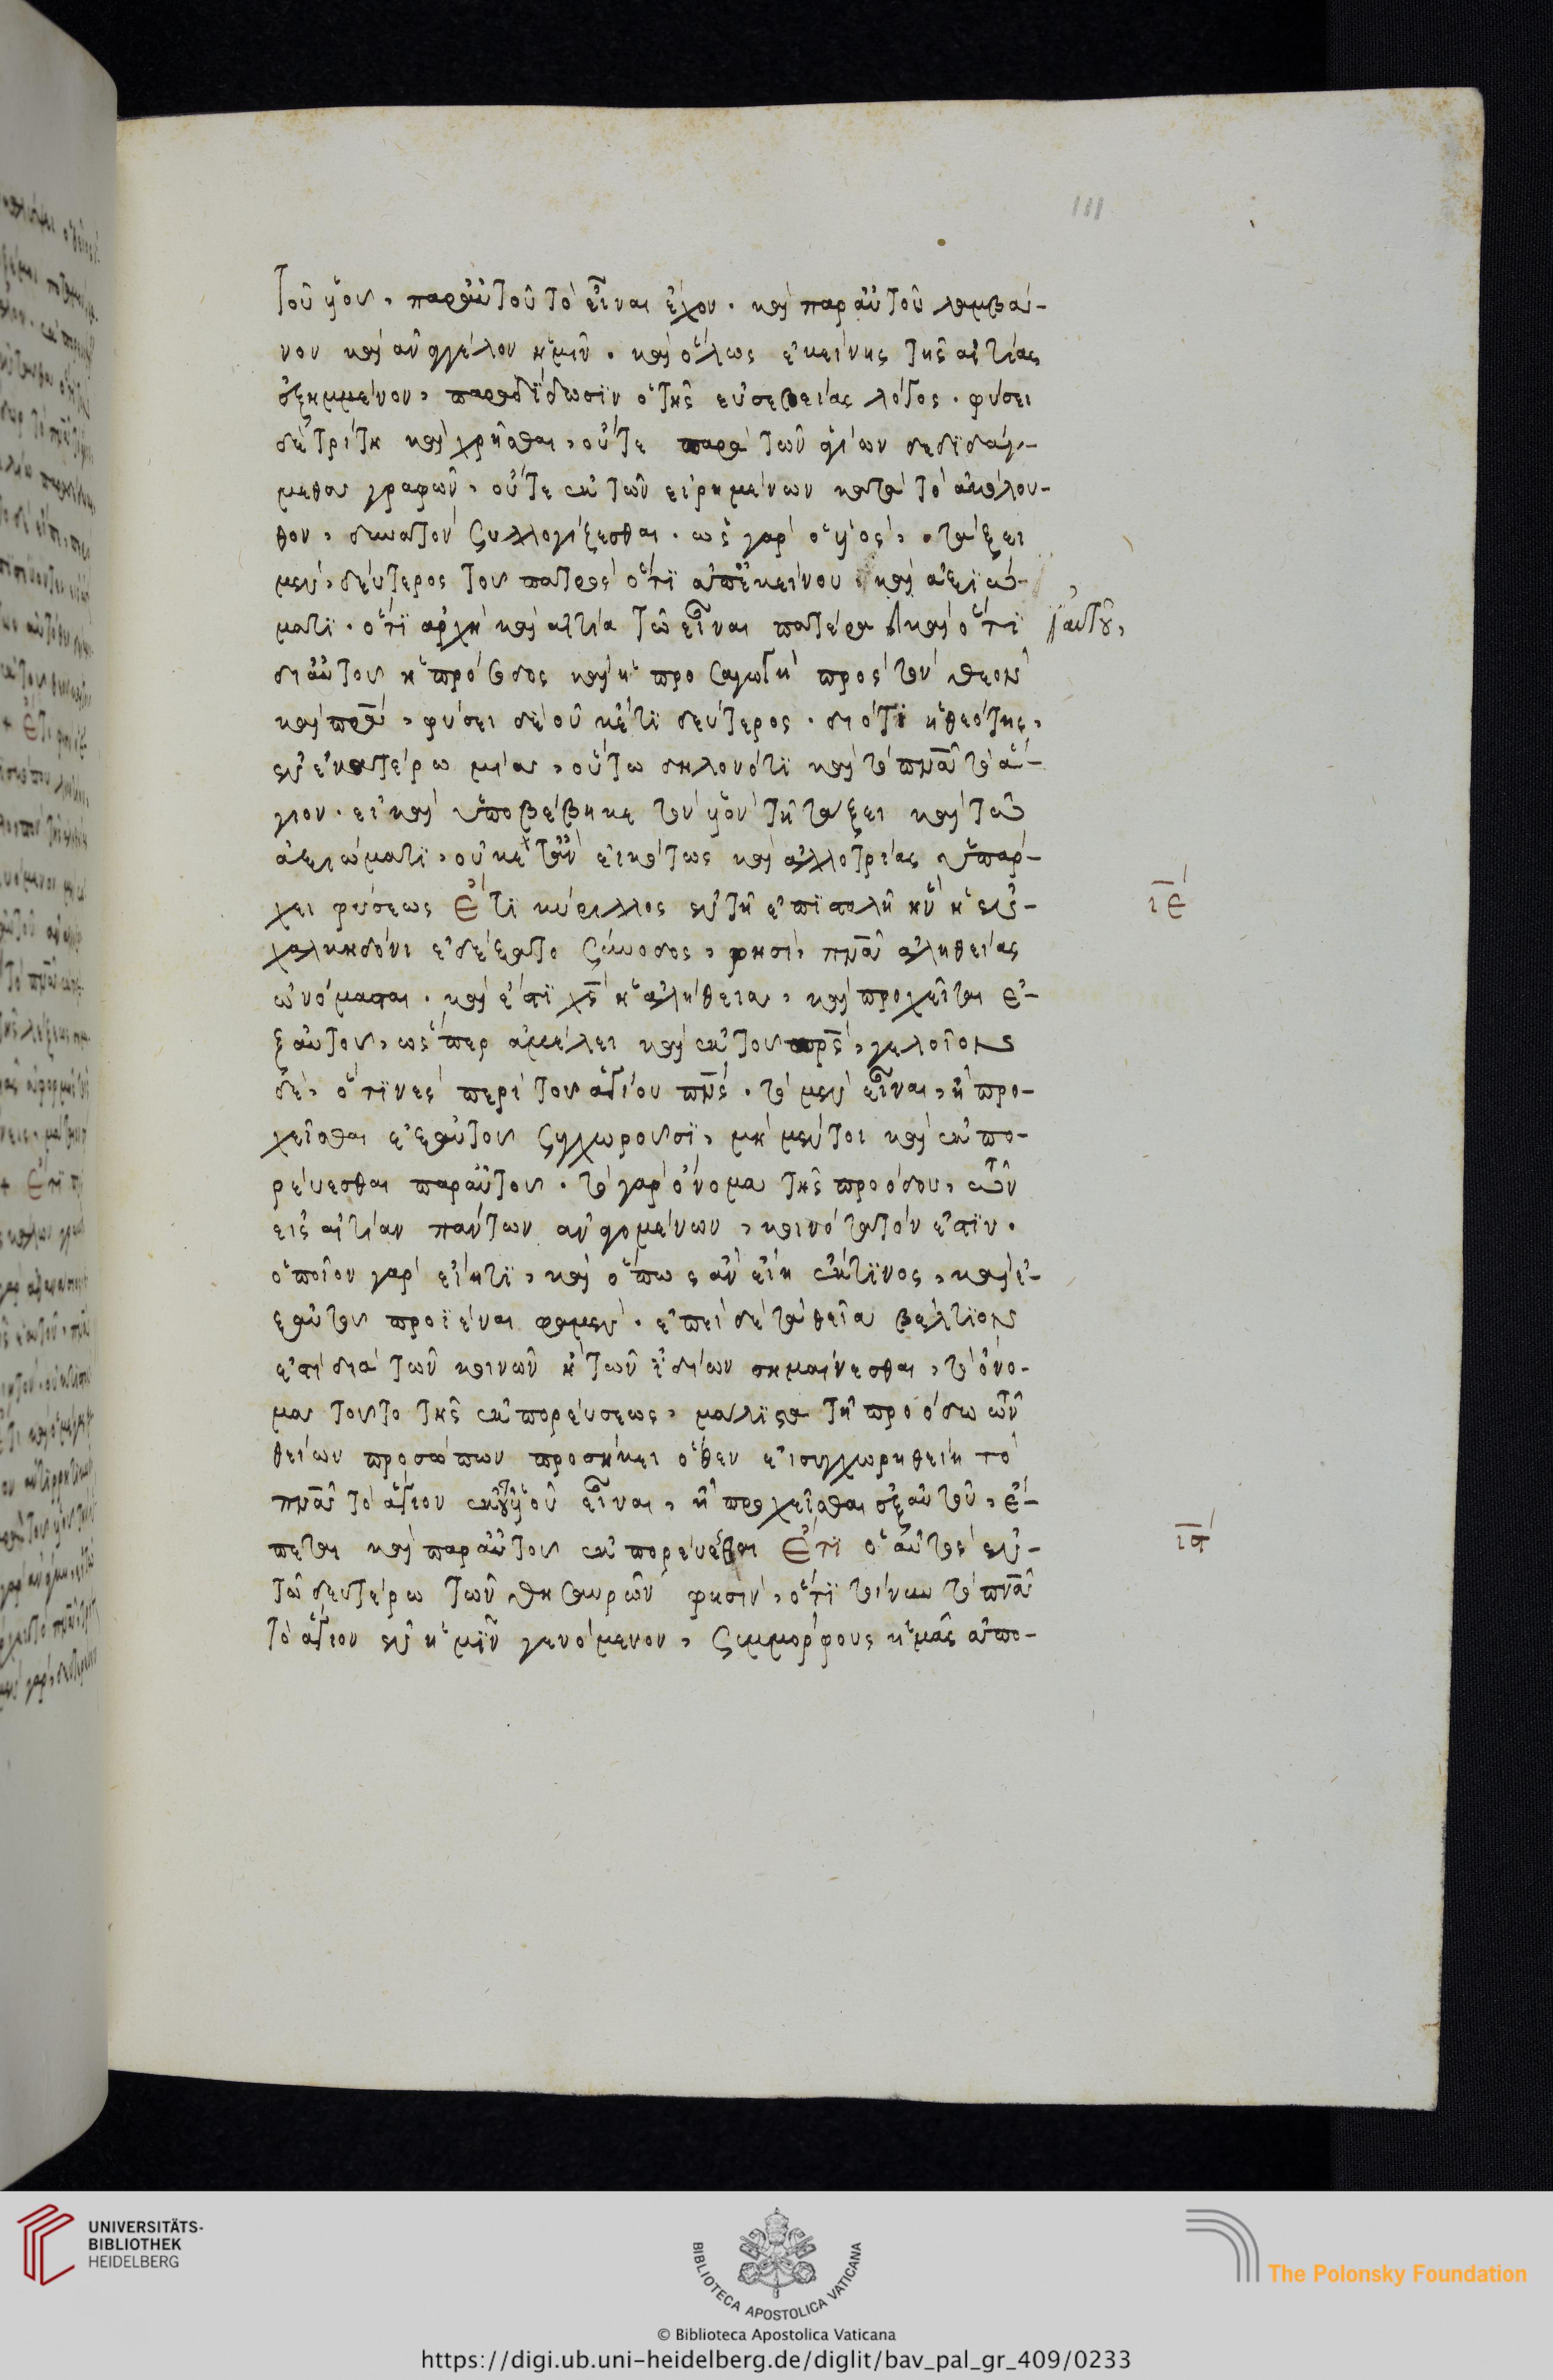 111
τοῦ υἱοῦ, παρ' αὐτοῦ τὸ εἶναι ἔχον. καὶ παρ' αὐτοῦ λαμβά-
νον καὶ ἀναγγέλον ἡμῖν. καὶ ὅλως ἐκείνης τῆς αἰτίας
ἐξημμένον, παραδίδωσιν ὁ τῆς εὐσεβείας λόγος. φύσει
δὲ τρίτη καὶ χρῆσθαι, οὔτε παρὰ τῶν ἁγίων δεδιδάγ-
μεθα γραφῶν, οὔτε ἐκ τῶν εἰρημένων κατὰ τὸ ἀκόλου-
θον, δυνατὸν συλλογίζεσθαι. ὡς γὰρ ὁ υἱὸς, τάξει
μὲν, δεύτερος τοῦ πατρὸς ὅτι ἀπ' ἐκείνου καὶ ἀξιώ-
ματι. ὅτι ἀρχὴ καὶ αἰτία τῶ εἶναι πατέρα καὶ ὅτι
αὐτοῦ,
δι' αὐτοῦ ἡ πρόοδος καὶ ἡ προσαγωγὴ πρὸς τὸν θεὸν
καὶ πρα, φύσει δὲ οὐκέτι δεύτερος. διότι ἡ θεότης,
ἐν ἑκατέρω μία, οὕτω δηλονότι καὶ τὸ πνα τὸ ἅ-
γιον. εἰ καὶ ὑποβέβηκε τὸν υἱὸν τῆ τάξει καὶ τῶ
ἀξιώματι, οὐκέτ' ἂν εἰκότως καὶ ἀλλοτρίας ὑπάρ-
χει φύσεως Ἔτι κύριλλος ἐν τῆ ἐπιστολῆ ἣν ἡ ἐν
ιε
χαλκηδόνι ἐδέξατο σύνοδος, φησὶ, πνα ἀληθείας
ὠνόμασται. καὶ ἔστι χς ἡ ἀλήθεια, καὶ προχεῖται ἐ-
ξ αὐτοῦ, ὥσπερ ἀμέλει καὶ ἐκ τοῦ πρς, γελοῖον
δὲ, ὅτινες περὶ τοῦ ἁγίου πνς. τὸ μὲν εἶναι, ἢ προ-
χεῖσθαι ἐξ αὐτοῦ συγχωροῦσι, μὴ μέντοι καὶ ἐκπο-
ρεύεσθαι παρ' αὐτοῦ. τὸ γὰρ ὄνομα τῆς προόδου, τῶν
εἰς αἰτίαν πάντων ἀναγομένων, κοινότατόν ἐστιν.
ὁποῖον γὰρ εἴη τι, καὶ ὅπως ἂν εἴη ἔκ τινος, καὶ ἐ-
ξ αὐτοῦ προϊέναι φαμὲν. ἐπεὶ δὲ τὰ θεῖα βέλτιον
ἐστὶ διὰ τῶν κοινῶν ἢ τῶν ἰδίων σημαίνεσθαι, τὸ ὄνο-
μα τοῦτο τῆς ἐκπορεύσεως, μάλιστα τῆ προόδω τῶν
θείων προσώπων προσήκει ὅθεν εἰ συγχωρηθείη τὸ
πνα τὸ ἅγιον ἐκ τοῦ υἱοῦ εἶναι, ἢ προχεῖσθαι ἐξ αὐτοῦ, ἕ-
πεται καὶ παρ' αὐτοῦ ἐκπορεύεσθαι Ἔτι ὁ αὐτὸς ἐν
ις
τῶ δευτέρω τῶν θησαυρῶν φησὶν, ὅτι τὸ πνα
τὸ ἅγιον ἐν ἡμῖν γενόμενον, συμμόρφους ἡμᾶς ἀπο-
UNIVERSITÄTS-
BIBLIOTHEK
HEIDELBERG
BIBLIOTECA APOSTOLICA VATICANA
The Polonsky Foundation
© Biblioteca Apostolica Vaticana
https://digi.ub.uni-heidelberg.de/diglit/bav_pal_gr_409/0233